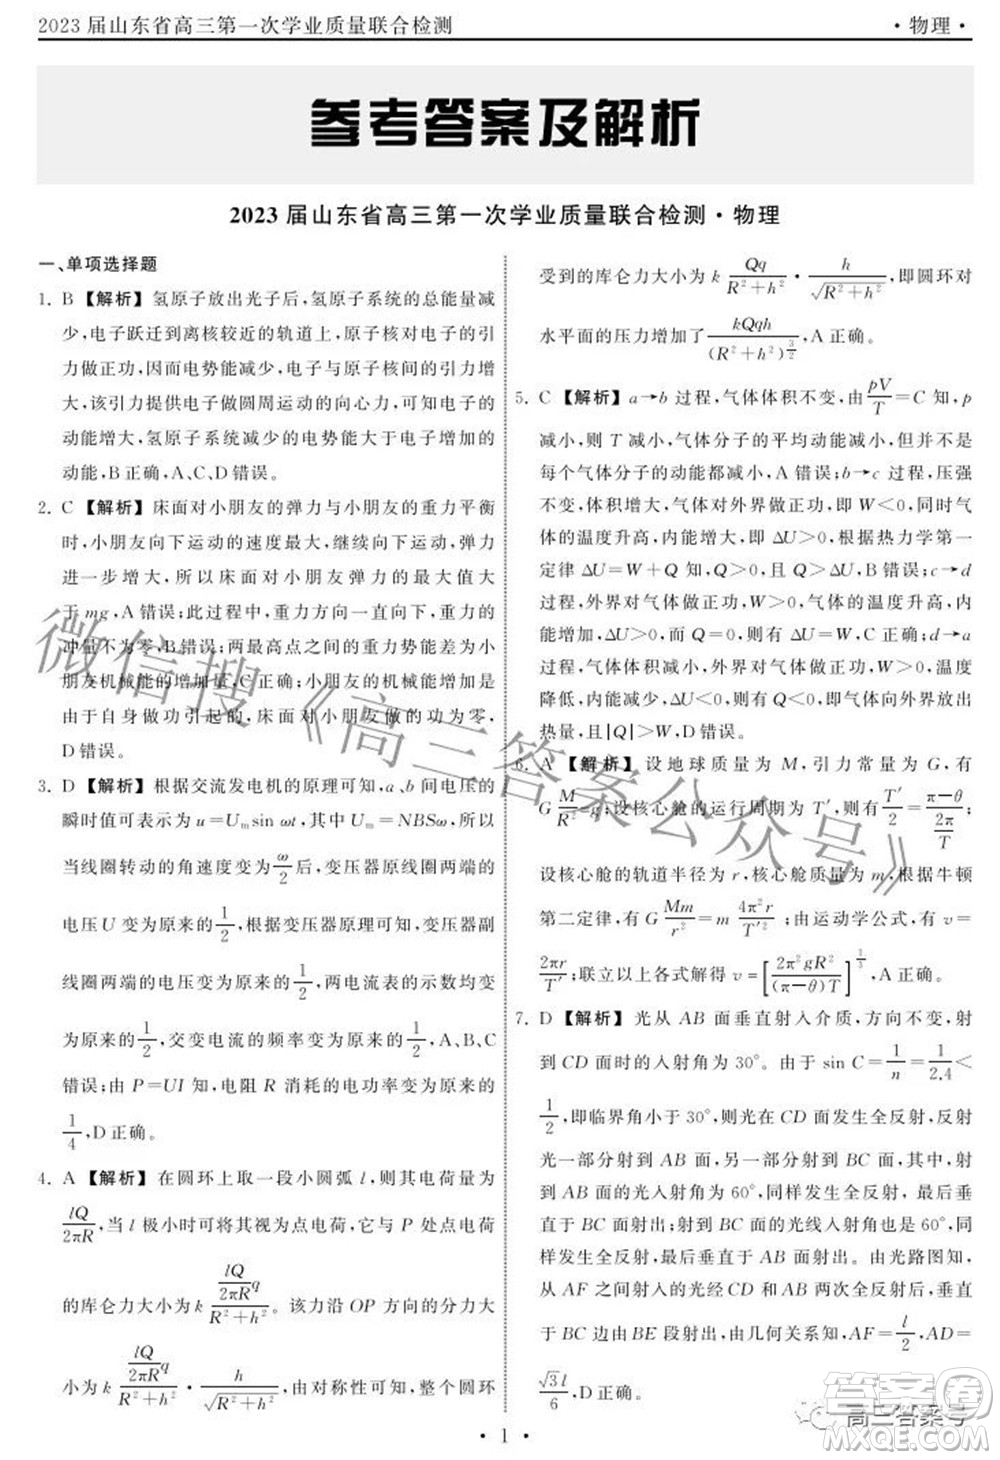 2023 届山东省高三第一次学业质量联合检测
·物理·
参考答案及解析
2023 届山东省高三第一次学业质量联合检测·物理
一、单项选择题
1. B 【解析】氢原子放出光子后,氢原子系统的总能量减
少,电子跃迁到离核较近的轨道上,原子核对电子的引
力做正功,因而电势能减少,电子与原子核间的引力增
大,该引力提供电子做圆周运动的向心力,可知电子的
动能增大,氢原子系统减少的电势能大于电子增加的
动能,B正确,A、C、D错误。
2. C 【解析】床面对小朋友的弹力与小朋友的重力平衡
时,小朋友向下运动的速度最大,继续向下运动,弹力
进一步增大,所以床面对小朋友弹力的最大值大
于 mg,A 错误;此过程中,重力方向一直向下,重力的
冲量不为零,B错误;两最高点之间的重力势能差为小
朋友机械能的增加量,C 正确;小朋友的机械能增加是
由于自身做功引起的,床面对小朋友做的功为零,
D 错误。
3. D 【解析】根据交流发电机的原理可知,a、b 间电压的
瞬时值可表示为 u=Uₘsin ωt,其中 Uₘ=NBSω,所以
当线圈转动的角速度变为 ω/2 后,变压器原线圈两端的
电压 U 变为原来的 1/2,根据变压器原理可知,变压器副
线圈两端的电压变为原来的 1/2,两电流表的示数均变
为原来的 1/2,交变电流的频率变为原来的 1/2,A、B、C
错误;由 P=UI 知,电阻 R 消耗的电功率变为原来的
1/4,D 正确。
4. A 【解析】在圆环上取一段小圆弧 l,则其电荷量为
lQ/2πR,当 l 极小时可将其视为点电荷,它与 P 处点电荷
的库仑力大小为 k (lQ/2πR)q/(R²+h²)。该力沿 OP 方向的分力大
小为 k (lQ/2πR)q/(R²+h²) · h/√(R²+h²),由对称性可知,整个圆环
受到的库仑力大小为 k Qq/(R²+h²) · h/√(R²+h²),即圆环对
水平面的压力增加了 kQqh/(R²+h²)^(3/2),A 正确。
5. C 【解析】a→b 过程,气体体积不变,由 pV/T=C 知,p
减小,则 T 减小,气体分子的平均动能减小,但并不是
每个气体分子的动能都减小,A 错误;b→c 过程,压强
不变,体积增大,气体对外界做功,即 W<0,同时气体
的温度升高,内能增大,即 ΔU>0,根据热力学第一
定律 ΔU=W+Q 知,Q>0,气体吸热,B 错误;c→d
过程,外界对气体做功,W>0,气体的温度升高,内
能增大,ΔU>0,而 Q=0,C 正确;d→a
过程,外界对气体做功,W>0,温度
降低,内能减小,ΔU<0,则 Q<0,即气体对外界放出
热量,且|Q|>W,D 错误。
6. A 【解析】设地球质量为 M,引力常量为 G,有
G M/R²=g;设核心舱的运行周期为 T′,则有 (T′/2)=(π-θ)/(2π/T)
设核心舱的轨道半径为 r,核心舱质量为 m,根据牛顿
第二定律,有 G Mm/r²=m 4π²r/T′²;由运动学公式,有 v=
2πr/T′;联立以上各式解得 v=[2π²gR²/(π-θ)T]^(1/3),A 正确。
7. D 【解析】光从 AB 面垂直射入介质,方向不变,射
到 CD 面时的入射角为 30°。由于 sin C=1/n=1/2.4<
1/2,即临界角小于 30°,则光在 CD 面发生全反射,反射
光一部分射到 AB 面,一部分射到 BC 面。由几何关系
知,射到 AB 面的入射角为 60°,同样发生全反射,最后垂
直于 BC 面射出;射到 BC 面的光线入射角也是 60°,
同样发生全反射,最后垂直于 AB 面射出。由光路图知,
从 AF 之间射入的光经 CD 和 AB 两次全反射后,垂直
于 BC 边由 BE 段射出,由几何关系知,AF=l/2,AD=
√3l/6,D 正确。
· 1 ·
微信搜《高三答案公众号》
高三答案号
答案圈
MXQE.COM